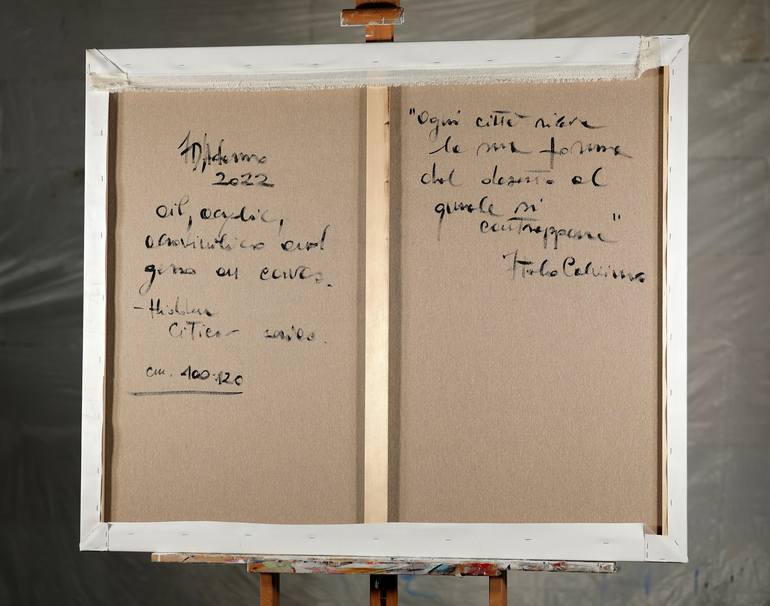 F D'Adamo
2022
oil, acrylic,
and
gesso on canvas.
- Hidden
Cities - series.
cm. 100x120
"Ogni città riceve
la sua forma
dal deserto al
quale si
contrappone"
Italo Calvino